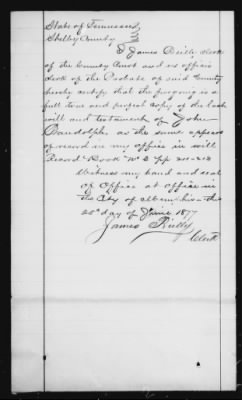 State of Tennessee
Shelby County
I James Reilly Clerk
of the County Court and ex officio
Clerk of the Probate of said County
hereby certify that the foregoing is a
full true and perfect copy of the last
will and testament of John
Randolph as the same appears
of record in my office in will
Record Book No 2 pp 211-212
Witness my hand and seal
of office at office in
the City of Memphis the
20th day of June 1877
James Reilly
Clerk